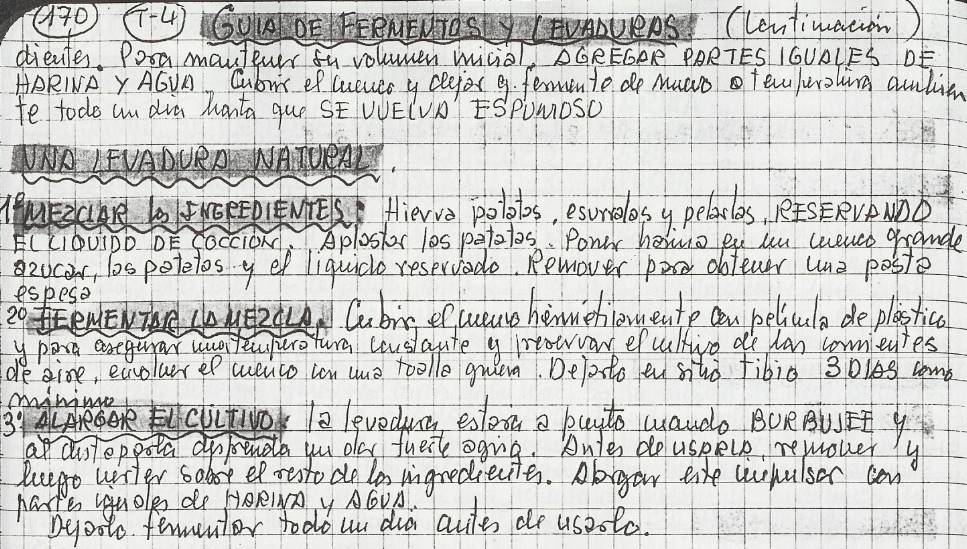 (170) (T-4) GUIA DE FERMENTOS Y LEVADURAS (Continuación)
dientes. Para mantener su volumen inicial, AGREGAR PARTES IGUALES DE
HARINA Y AGUA. Cubrir el cuenco y dejar q. fermente de nuevo a temperatura ambien
te todo un dia hasta que SE VUELVA ESPUMOSO
UNA LEVADURA NATURAL.
1º MEZCLAR los INGREDIENTES: Hierva patatas, escurralas y pelarlas, RESERVANDO
EL LIQUIDO DE COCCION. Aplastar las patatas. Poner harina en un cuenco grande
azucar, las patatas y el liquido reservado. Remover para obtener una pasta
espesa
2º FERMENTAR LA MEZCLA. Cubrir el cuenco herméticamente con pelicula de plastico
y para asegurar una temperatura constante y preservar el cultivo de las corrientes
de aire, envolver el cuenco con una toalla gruesa. Dejarlo en sitio tibio 3 DIAS como
minimo
3º ALARGAR EL CULTIVO: la levadura estara a punto cuando BURBUJEE y
al destaparla desprenda un olor fuerte agrio. Antes de usarla, remover y
luego verter sobre el resto de los ingredientes. Alargar este impulsor con
partes iguales de HARINA y AGUA.
Dejarlo fermentar todo un dia antes de usarlo.